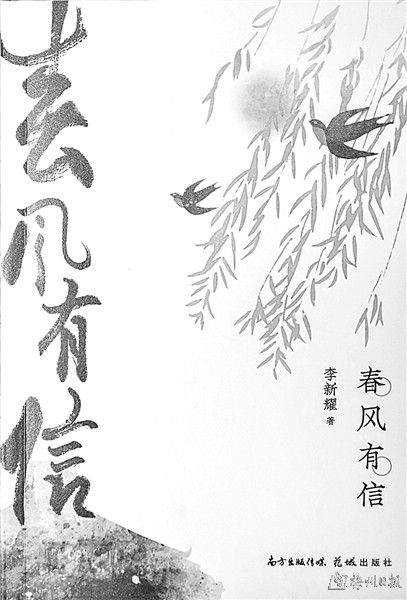 春风有信
春风有信
李新耀 著
南方出版传媒 花城出版社
梅州日报